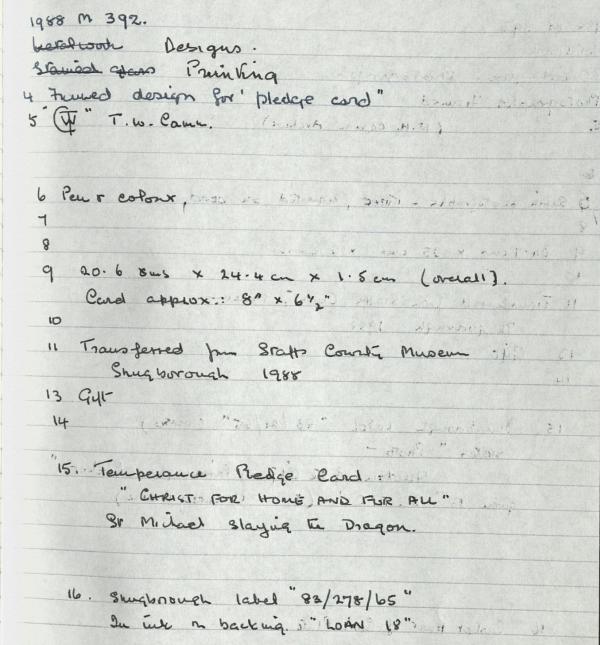 1988 M 392.
Designs.
Stained glass Printing
4 Framed design for 'pledge card"
5 " " T.W. Camm.
6 Pen & colour,
7
8
9 20.6 cms x 24.4 cm x 1.5 cm (overall).
Card approx.: 8" x 6½"
10
11 Transferred from Staffs County Museum
Shugborough 1988
13 Gift
14
15. Temperance Pledge Card:
"CHRIST FOR HOME, AND FOR ALL"
St Michael slaying the Dragon.
16. Shugborough label "83/278/65"
In ink on backing: "LOAN 18"